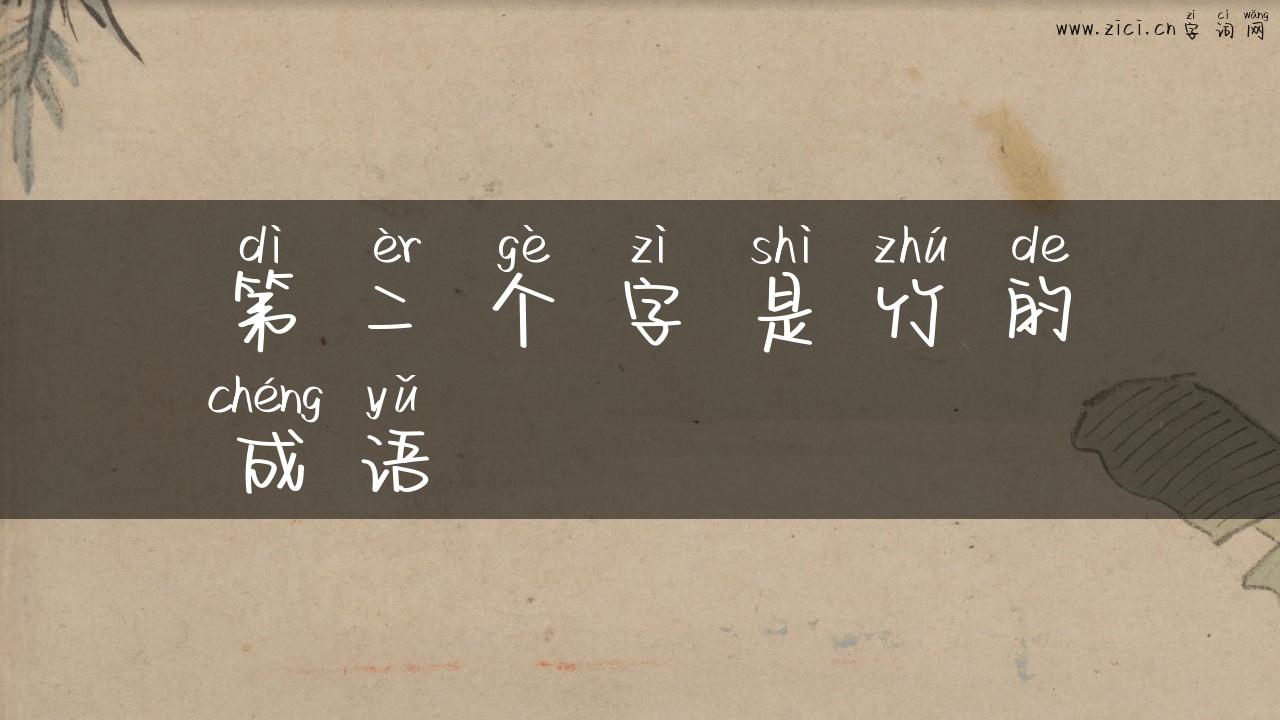 zì cí wǎng
www.zici.cn 字词网
dì èr gè zì shì zhú de
第二个字是竹的
chéng yǔ
成语